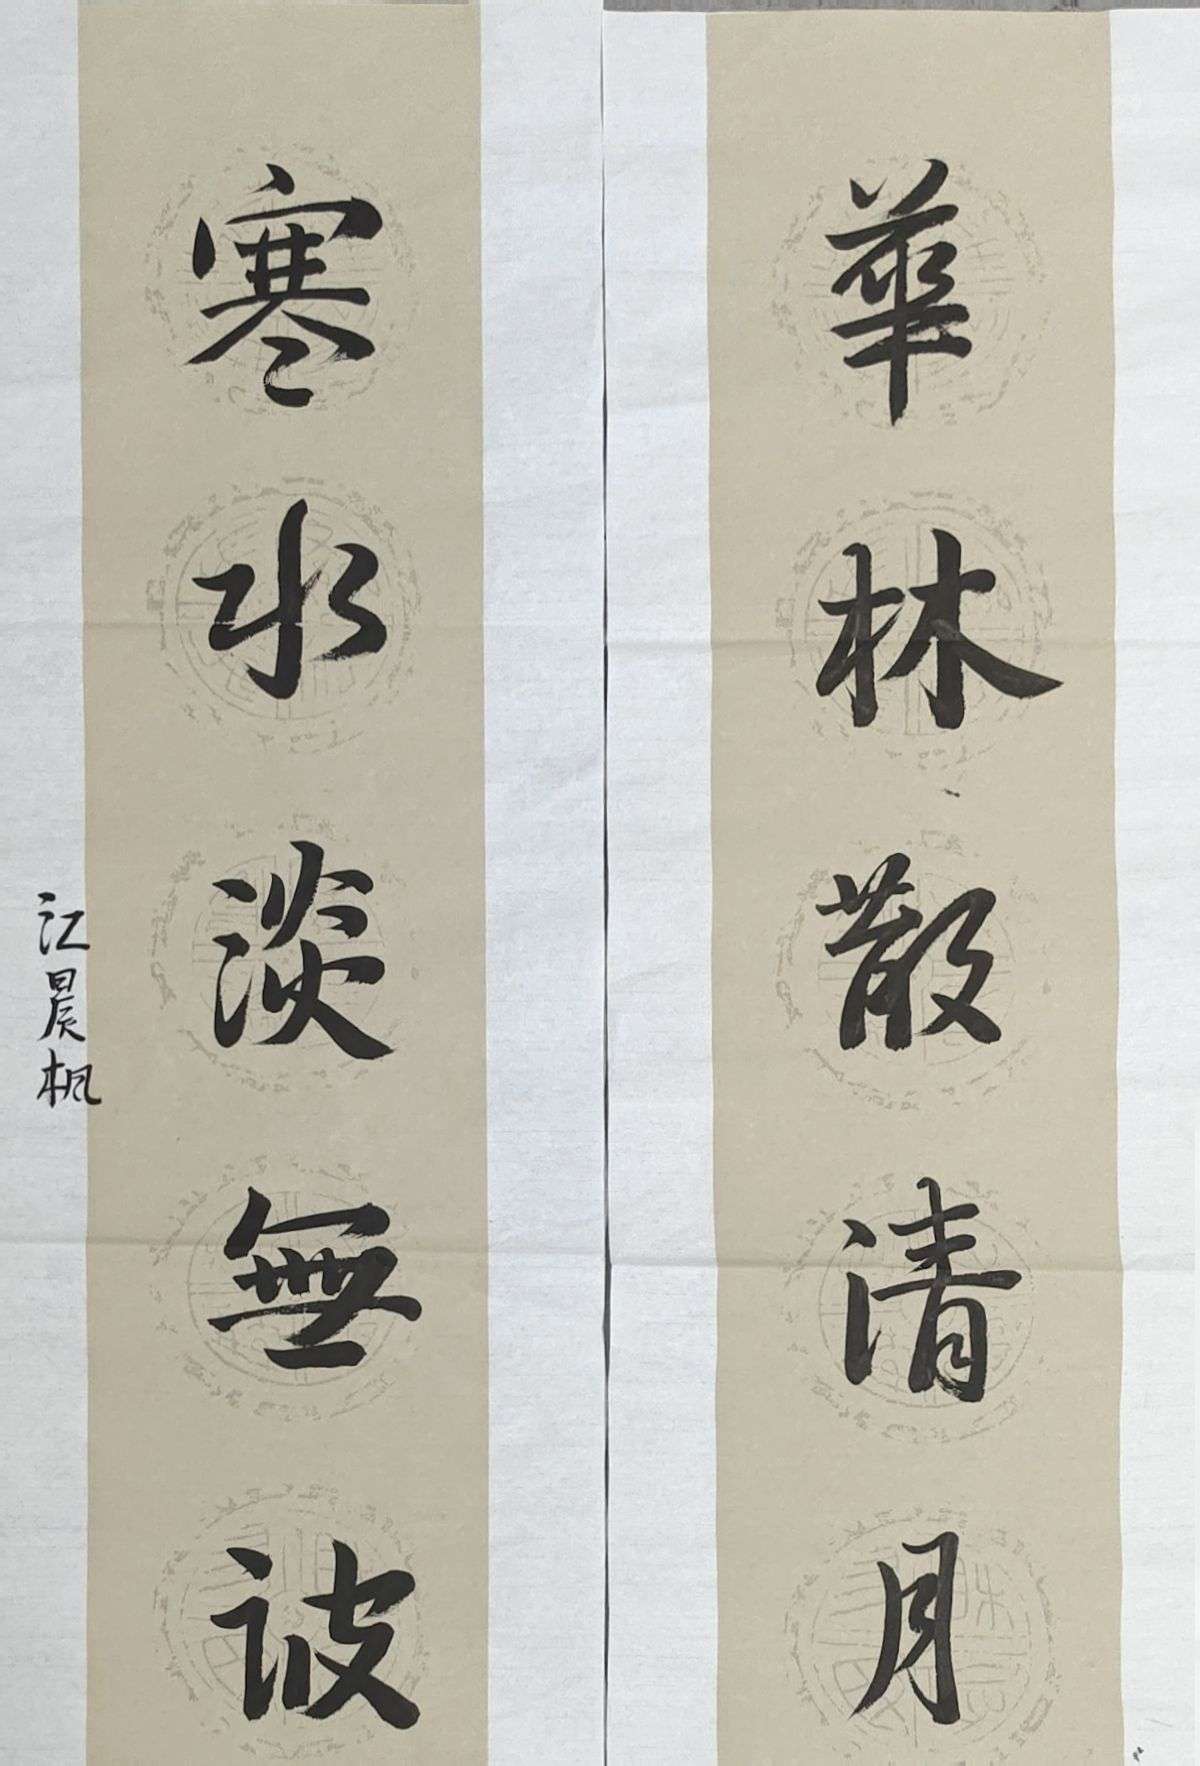 華林散清月
寒水淡無波
江晨枫